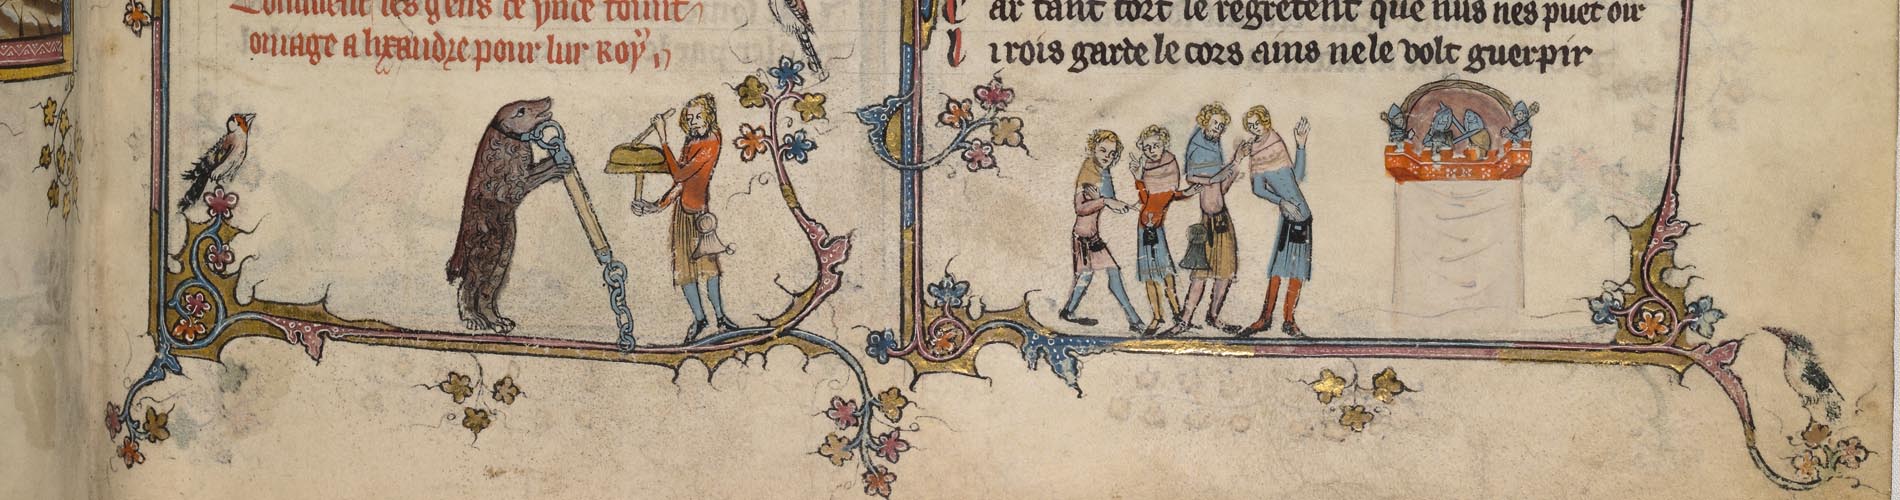 Comment les gens de ynce foiunt
omage a lixandre pour lur Roy
ar tant fort le regretent que nus nes puet oir
li rois garde le cors ains ne le volt guerpir